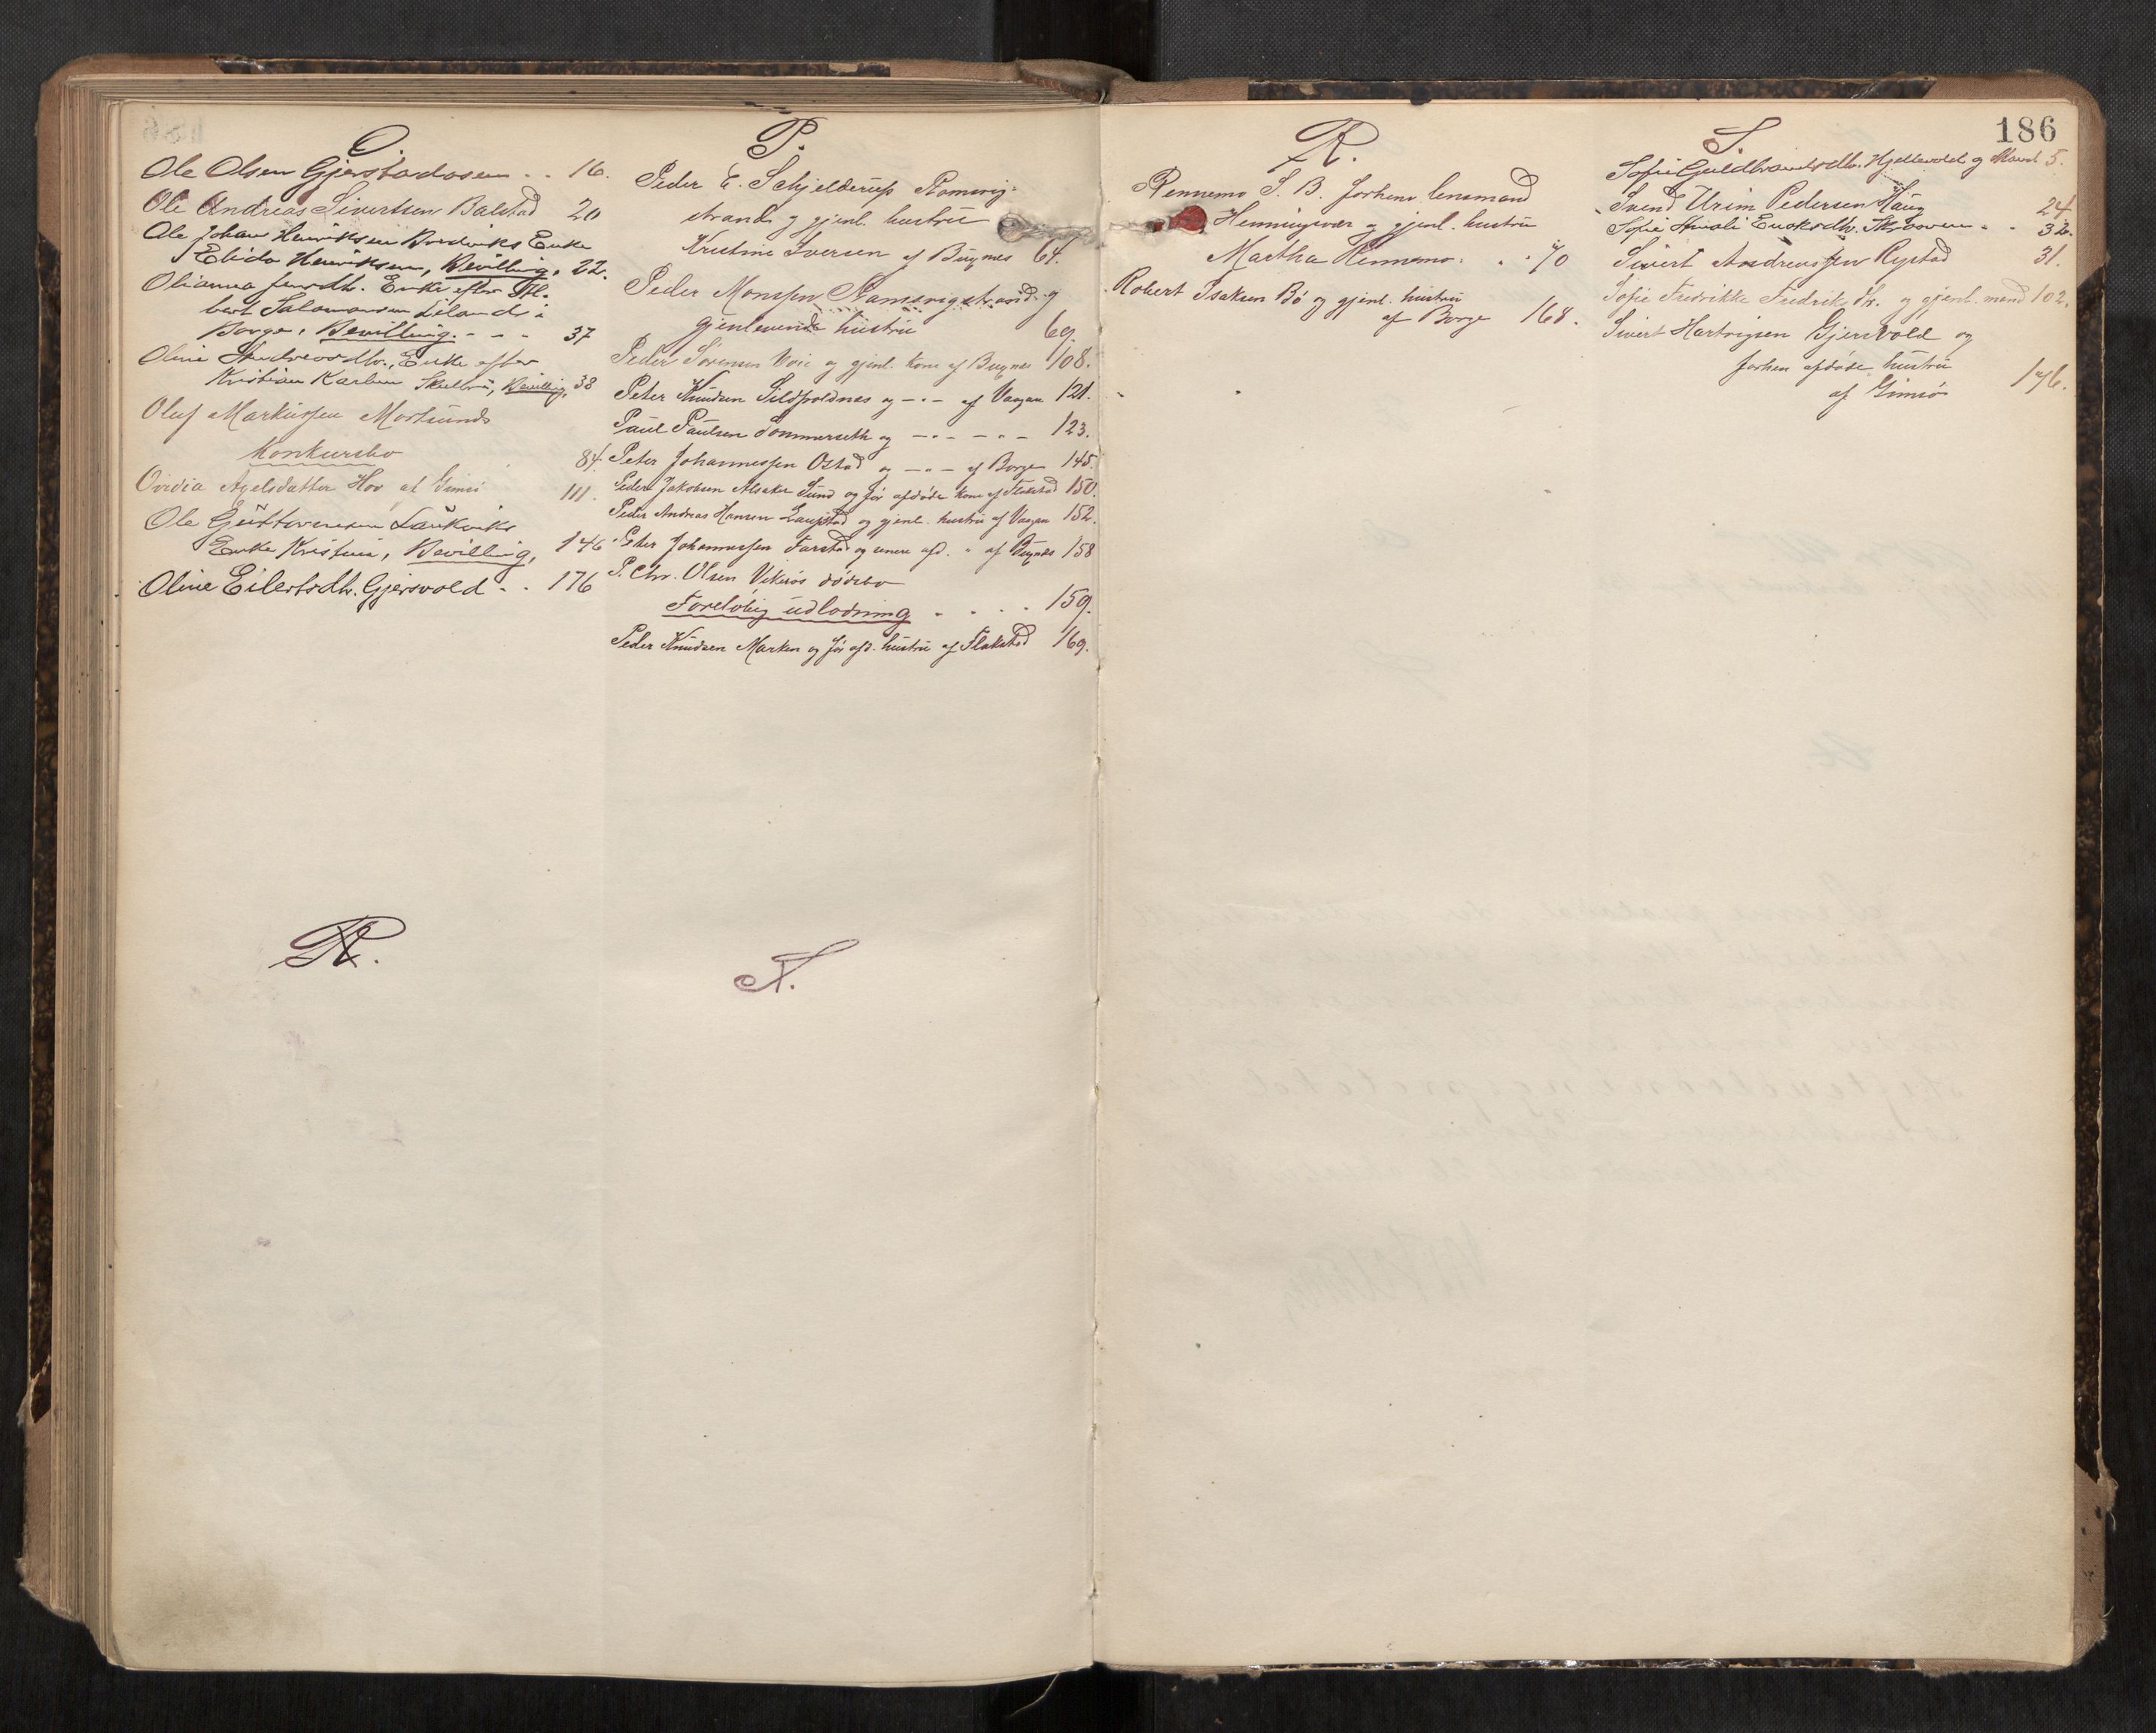 O.
Ole Olsen Gjerstadosen . . 16.
Ole Andreas Sivertsen Balstad 20
Ole Johan Henriksen Enke
Elida Henriksen, Bevilling. 22.
Olianna Jensdtr. Enke efter
bert Salamonsen Liland i
Borge, Bevilling. - - - 37
Oline Andreasdtr., Enke efter
Kristian Karlsen Bevilling, 38
Oluf Markussen Mortsunds
Konkursbo 84.
Ovidia Axelsdatter Hov af Gimsö 111.
Ole Gustavensen Laukviks
Enke Kristine, Bevilling, 146
Oline Eilertsdtr. Gjersvold . . 176
R.
P.
Peder E. Schjelderup Ramsvig-
strand og gjenl. hustru
Kristine Iversen af Buxnes 64.
Peder Monssen Ramsvigstrand og
gjenlevende hustru 69.
Peder Sörensen og gjenl. kone af Buxnes 108.
Peter Knudsen Sildpoldnes og -"- af Vaagan 121.
Paul Paulsen Sommerseth og -"- -"- 123.
Peter Johannessen Ostad og -"- af Borge 145.
Peder Jakobsen Alsaker Sund og för afdöde kone af Flakstad 150.
Peder Andreas Hansen Laupstad og gjenl. hustru af Vaagan 152.
Peter Johannessen Farstad og afd. " af Buxnes 158
P. Chr. Olsen Vikerös dödsbo
Foreløbig udlodning . . . . 159.
Peder Knudsen Marken og för afd. hustru af Flakstad 169.
S.
R.
Rennemo S. B. forhenv. lensmand
Henningsvær og gjenl. hustru
Martha Rennemo. . . 70
Robert Isaksen Bö og gjenl. hustru
af Borge 168.
S. 186
Sofie Guldbrandsdtr. Hjellevold og Mand 5.
Svend Urim Pedersen Haug 24.
Sofie Eriksdtr. Skraaven . . 32.
Sivert Andreassen Rystad 31.
Sofie Fredrikke Fredriksdtr. og gjenl. mand 102.
Sivert Hartvigsen Gjersvold og
forhen afdöde hustru
af Gimsö 176.